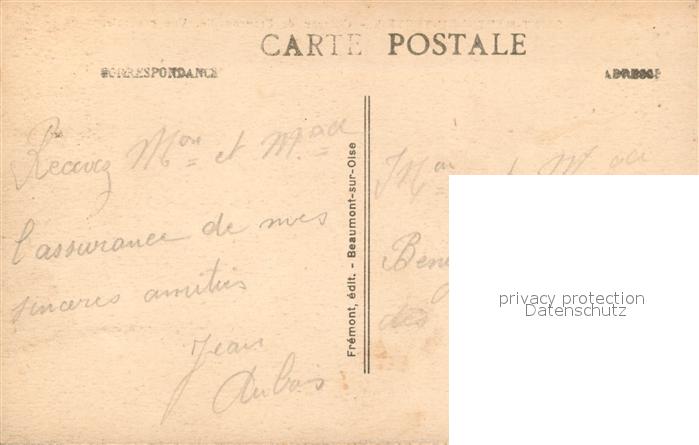 CARTE POSTALE
CORRESPONDANCE
ADRESSE
Recevez Mon et Mada
l'assurance de mes
sinceres amities
Jean
Dubois
Frémont, édit. - Beaumont-sur-Oise
Mon et Mada
Ben
des
privacy protection
Datenschutz